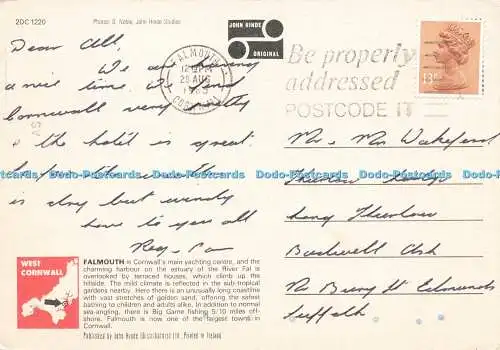 2DC 1220
Photos: D. Noble, John Hinde Studios
JOHN HINDE
ORIGINAL
FALMOUTH
28 AUG
CORNWALL
Be properly
addressed
POSTCODE IT
Dear All.
We are having
a nice time. We find
Cornwall very pretty
& the hotel is great.
the weather
is dry but windy
love to you all
Mr & Mrs Wakeford
Thurlow
Long Thurlow
Badwell Ash
Nr Bury St Edmunds
Suffolk
WEST
CORNWALL
FALMOUTH is Cornwall's main yachting centre, and the
charming harbour on the estuary of the River Fal is
overlooked by terraced houses, which climb up the
hillside. The mild climate is reflected in the sub-tropical
gardens nearby. Here there is an unusually long coastline
with vast stretches of golden sand, offering the safest
bathing to children and adults alike. In addition to normal
sea-angling, there is Big Game fishing 5/10 miles off-
shore. Falmouth is now one of the largest towns in
Cornwall.
Published by John Hinde (Distributors) Ltd. Printed in Ireland
Dodo-Postcards